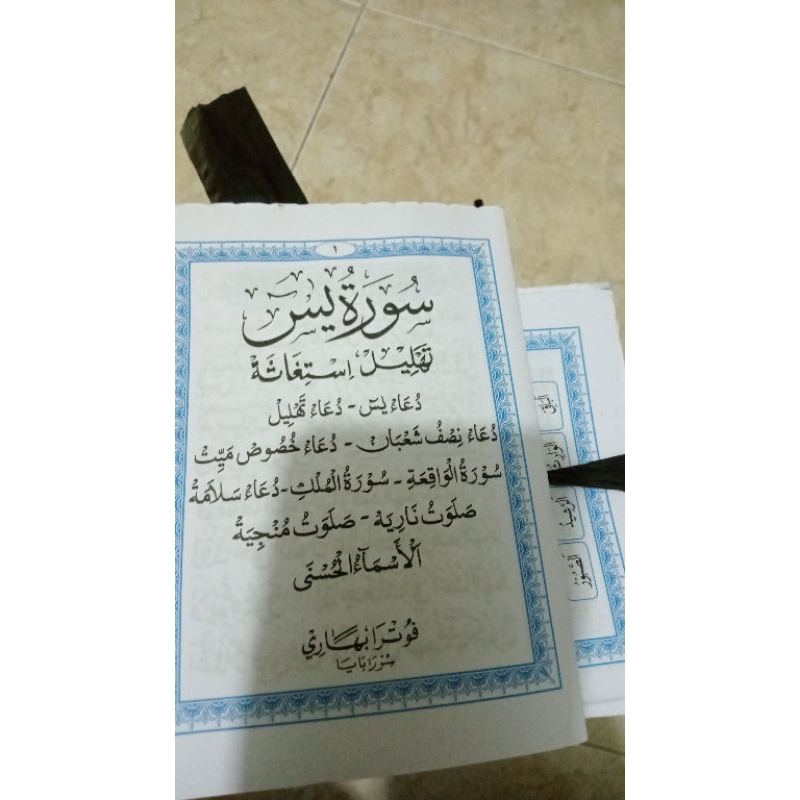 ١
سُورَةُ يٰسٓ
تَهْلِيْل اِسْتِغَاثَةْ
دُعَاءْ يٰسٓ - دُعَاءْ تَهْلِيْل
دُعَاءْ نِصْفُ شَعْبَانْ - دُعَاءْ خُصُوصْ مَيِّتْ
سُوْرَةُ الْوَاقِعَةِ - سُوْرَةُ الْمُلْكِ - دُعَاءْ سَلَامَةْ
صَلَوَتْ نَارِيَةْ - صَلَوَتْ مُنْجِيَةْ
اَلْأَسْمَآءُ الْحُسْنَى
فُوْتْرَا بْهَارِيْ
سُوْرَابَايَا
الْبَاقِي
الْوَارِثُ
الرَّشِيْدُ
الصَّبُوْرُ